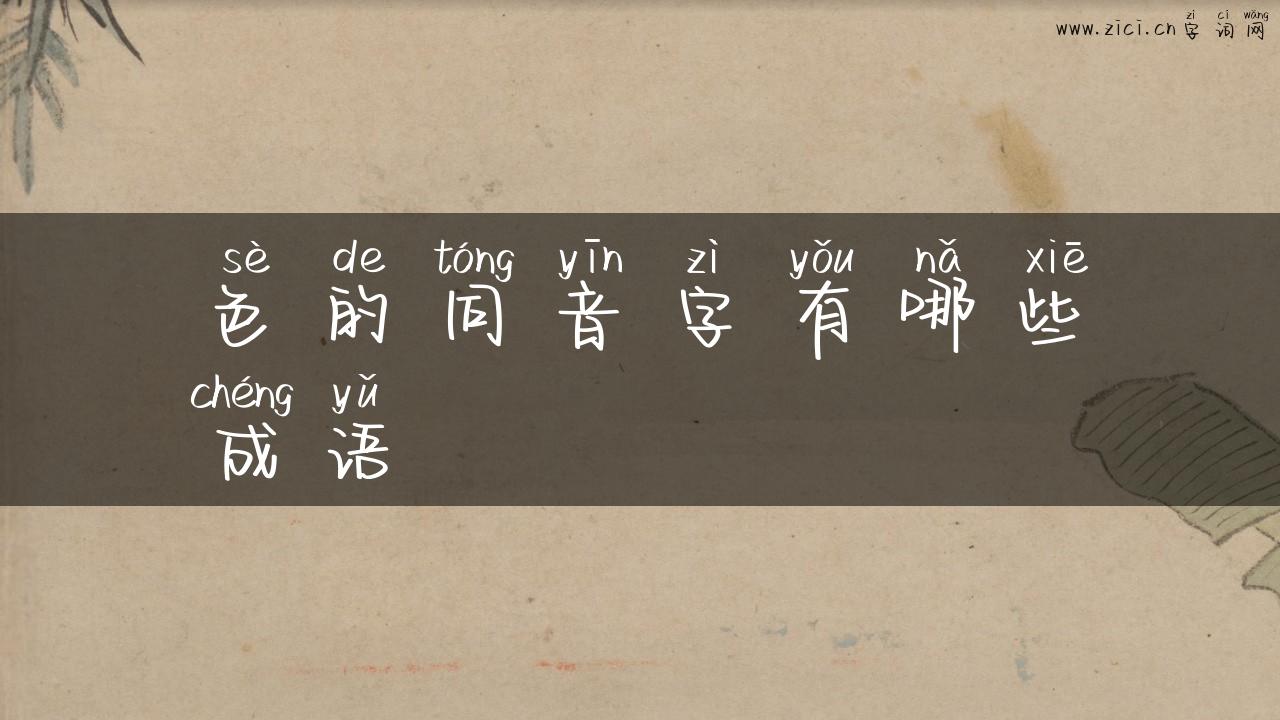 zì cí wǎng
www.zici.cn 字词网
sè de tóng yīn zì yǒu nǎ xiē
色的同音字有哪些
chéng yǔ
成语